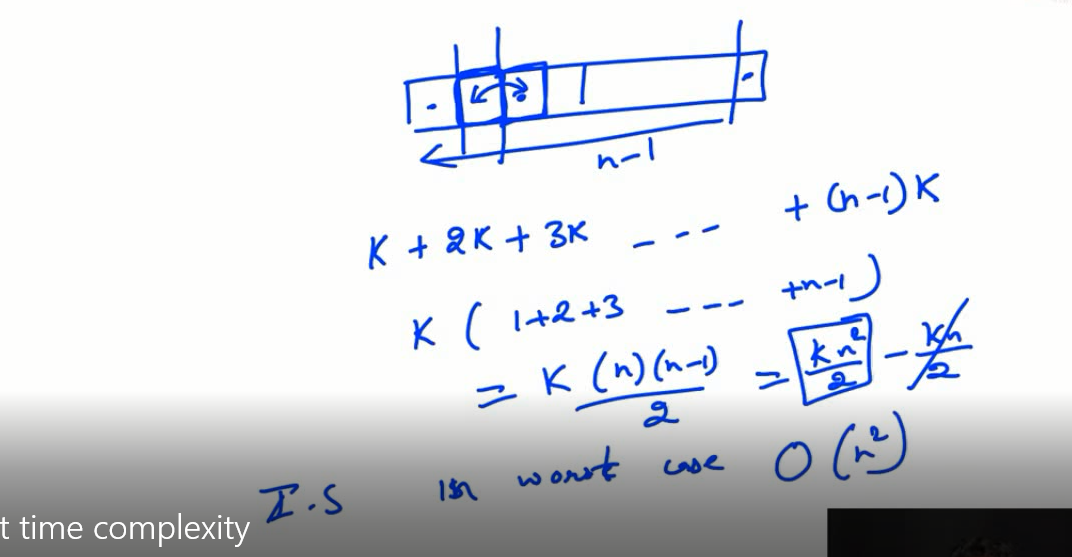 n-1
K + 2K + 3K --- + (n-1)K
K ( 1+2+3 --- +n-1 )
= K (n)(n-1)/2 = kn²/2 - kn/2
I.S in worst case O(n²)
t time complexity